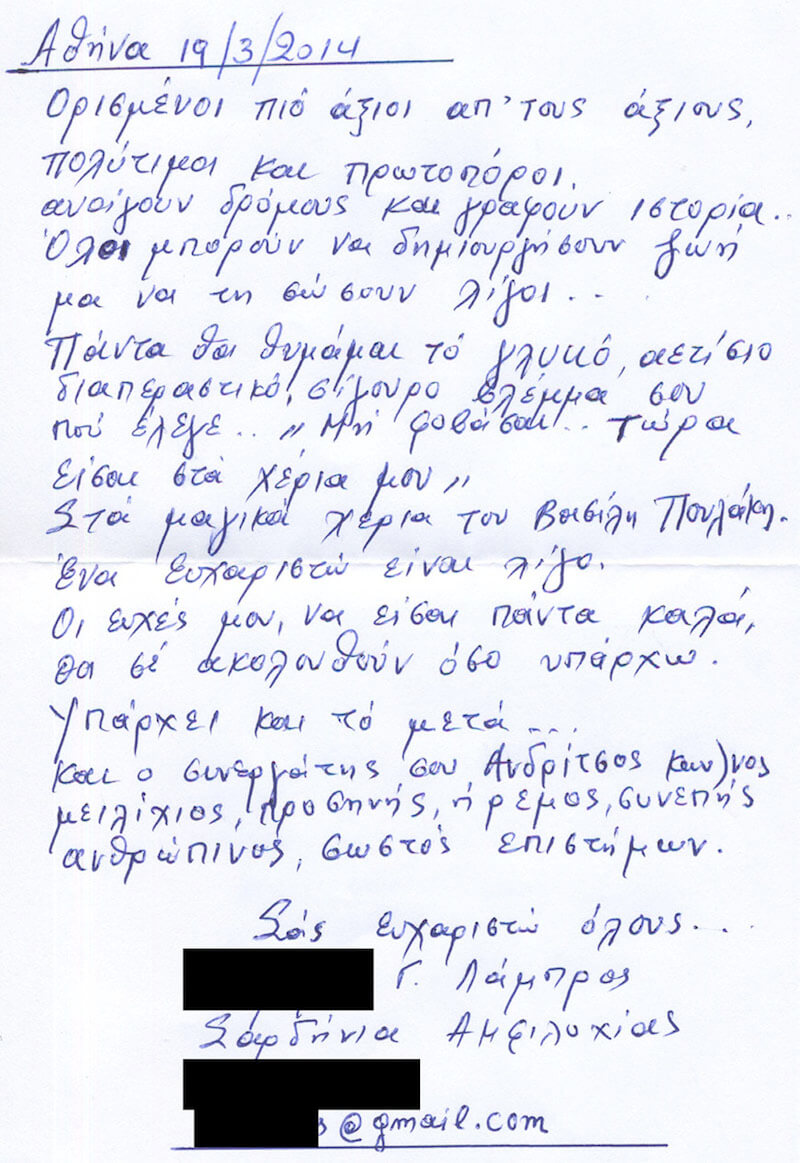 Αθήνα 19/3/2014
Ορισμένοι πιό άξιοι απ' τους άξιους,
πολύτιμοι και πρωτοπόροι.
ανοίγουν δρόμους και γράφουν ιστορία..
Όλοι μπορούν να δημιουργήσουν ζωή
μα να τη σώσουν λίγοι...
Πάντα θα θυμάμαι τό γλυκό, αετίσιο
διαπεραστικό, σίγουρο βλέμμα σου
πού έλεγε.. ,, Μή φοβάσαι.. τώρα
είσαι στά χέρια μου ,,
Στά μαγικά χέρια του Βασίλη Πουλάκη.
Ένα ευχαριστώ είναι λίγο.
Οι ευχές μου, να είσαι πάντα καλά,
θα σέ ακολουθούν όσο υπάρχω.
Υπάρχει και τό μετά...
και ο συνεργάτης σου Ανδρίτσος Κων)νος
μειλίχιος, προσηνής, ήρεμος, συνεπής
ανθρώπινος, σωστός επιστήμων.
Σάς ευχαριστώ όλους...
Γ. Λάμπρος
Σαρδήνια Αμφιλοχίας
s@gmail.com